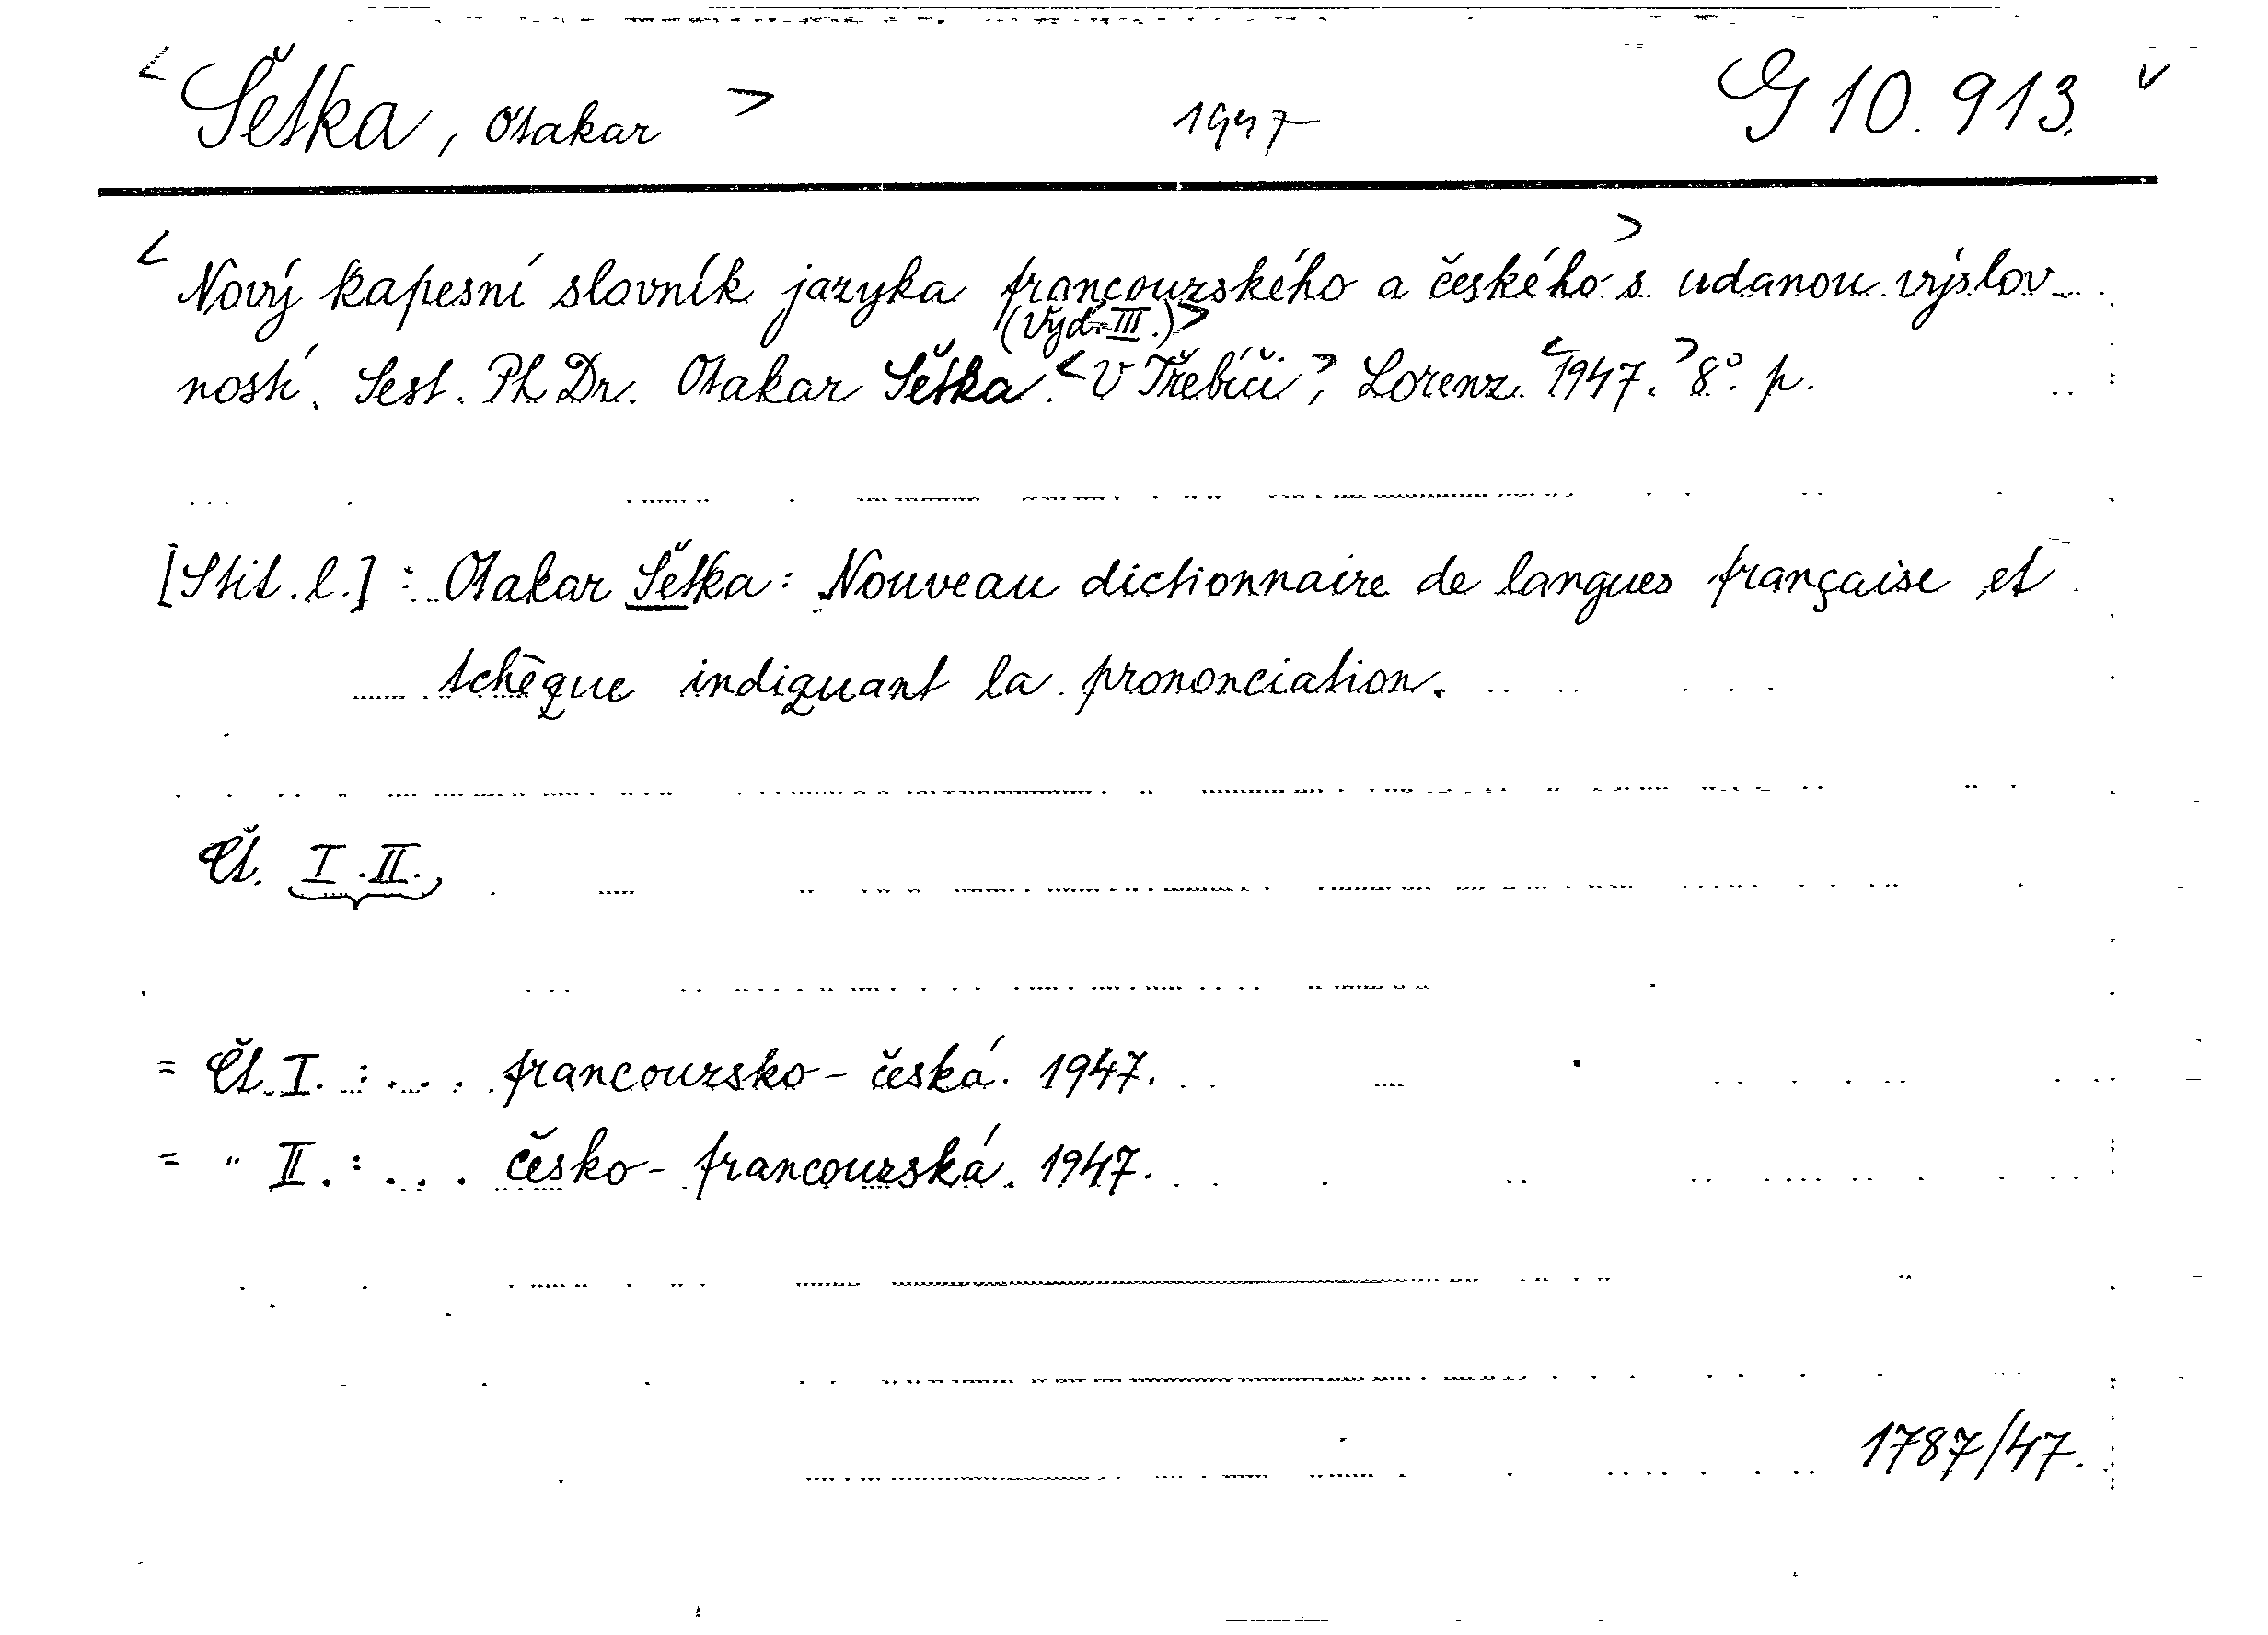 < Šetka, Otakar > 1947 G 10.913. v
< Nový kapesní slovník jazyka francouzského a českého > s udanou výslov-
(Vyd. III.) >
ností. Sest. PhDr. Otakar Šetka. < V Třebíči >, Lorenz. < 1947. > 8°. p.
[Stit. l.] : Otakar Šetka: Nouveau dictionnaire de langues française et
tchèque indiquant la prononciation.
Čá. I. II.
= Čá. I. : ... francouzsko-česká. 1947.
= " II. : ... česko-francouzská. 1947.
1787/47.